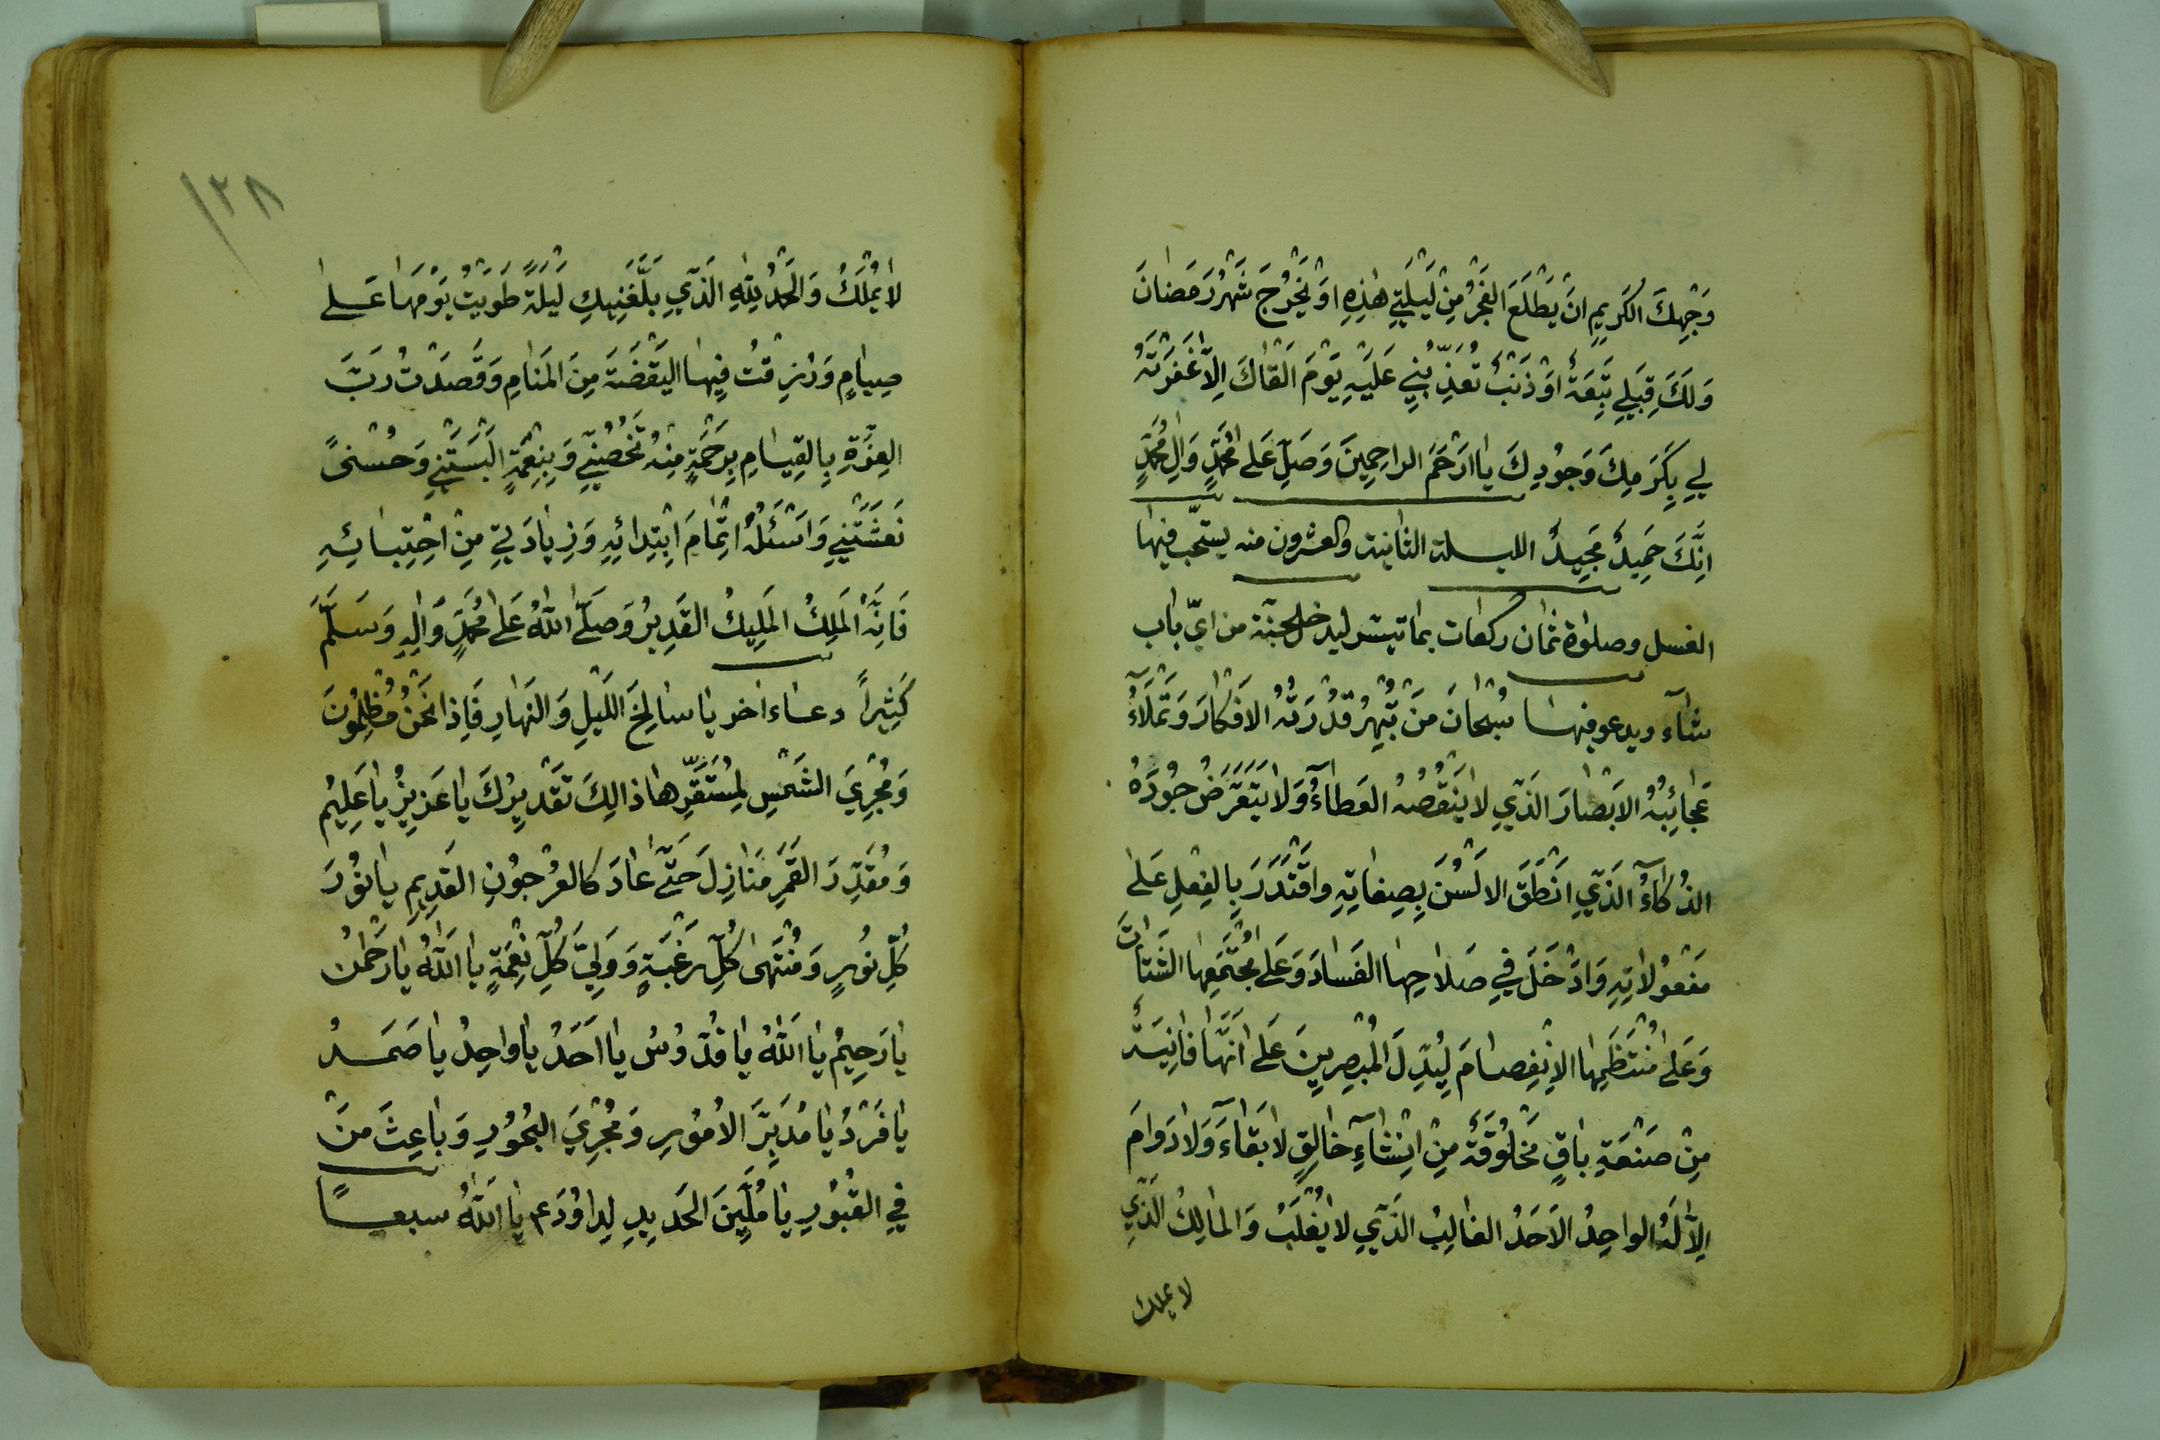 وَجْهِكَ الكَرِيمِ انْ يَطْلَعَ الفَجْرُ مِنْ لَيْلَتِي هٰذِهِ اوْ يَخْرُجَ شَهْرُ رَمَضٰانَ
وَلَكَ قِبَلِي تَبِعَةٌ اوْ ذَنْبٌ تُعَذِّبُنِي عَلَيْهِ يَوْمَ القٰاكَ اِلَّا غَفَرْتَهُ
لِي بِكَرَمِكَ وَجُودِكَ يٰا ارْحَمَ الراحِمِينَ وَصَلِّ عَلى مُحَمَّدٍ وَالِ مُحَمَّدٍ
انِّكَ حَمِيدٌ مَجِيدٌ الليلة الثانية والعشرون منه يستحب فيها
الغسل وصلوٰة ثمٰان ركعات بما تيسر ليدخل الجنة من ايّ باب
شاۤء ويدعو فيهٰا سُبْحٰانَ مَنْ تَبْهَرُ قُدْرَتُهُ الافْكٰارَ وَتَمْلَأُ
عَجٰائِبُهُ الابْصٰارَ الَّذي لا يَنْقُصُهُ العَطٰاۤءُ وَلا يَتَعَرَّضُ جُودَهُ
الذُكٰاۤءُ الَّذي انْطَقَ الالْسُنَ بِصِفٰاتِهِ واقْتَدَرَ بِالفِعْلِ عَلى
مَفْعُولاتِهِ وَادْخَلَ فِي صَلاحِهٰا الفَسٰادَ وَعَلى مُجْتَمَعِهٰا الشَتٰاتَ
وَعَلى مُنْتَظَمِهٰا الاِنْفِصٰامَ لِيُدِلَّ المُبْصِرِينَ عَلى انَّهٰا فٰانِيَةٌ
مِنْ صَنْعَةِ بٰاقٍ مَخْلُوقَةٌ مِنْ اِنْشٰاۤءِ خٰالِقٍ لا بَقٰاۤءَ وَلا دَوٰامَ
اِلَّا لَهُ الواحِدُ الاَحَدُ الغٰالِبُ الَّذي لا يُغْلَبُ وَالمٰالِكُ الَّذي
لا يملك
١٣٨
لا يُمْلَكُ وَالحَمْدُ لِلّٰهِ الَّذي بَلَّغَنِيكِ لَيْلَةً طَوَيْتُ يَوْمَهٰا عَلى
صِيٰامٍ وَرُزِقْتُ فِيهٰا اليَقْضَةَ مِنَ المَنٰامِ وَقَصَدْتُ رَبَّ
العِزَّةِ بِالقِيٰامِ بِرَحْمَةٍ مِنْهُ تَخُصُّنِي وَبِنِعْمَةٍ الْبَسَتْنِي وَحُسْنىً
نَعَشَتْنِي وَاسْئَلُهُ اتْمٰامَ ابْتِدائِهِ وَزِيٰادَةً لِي مِنْ اجْتِبٰائِهِ
فَاِنَّهُ المَلِكُ المَلِيكُ القَدِيرُ وَصَلَّى اللّٰهُ عَلى مُحَمَّدٍ وَالِهِ وَسَلَّمَ
كَثِيراً دعٰاء اخر يٰا سٰالِخَ اللَيْلِ وَالنَهٰارِ فَاِذا نَحْنُ مُظْلِمُونَ
وَمُجْرِيَ الشَمْسِ لِمُسْتَقَرِّهٰا ذالِكَ تَقْدِيرُكَ يٰا عَزِيزُ يٰا عَلِيمُ
وَمُقَدِّرَ القَمَرِ مَنٰازِلَ حَتّٰى عٰادَ كالعُرْجُونِ القَدِيمِ يٰا نُورَ
كُلِّ نُورٍ وَمُنْتَهٰى كُلِّ رَغْبَةٍ وَوَلِيَّ كُلِّ نِعْمَةٍ يٰا اللّٰهُ يٰا رَحْمٰنُ
يٰا رَحِيمُ يٰا اللّٰهُ يٰا قُدّوُسُ يٰا احَدُ يٰا واحِدُ يٰا صَمَدُ
يٰا فَرْدُ يٰا مُدَبِّرَ الاُمُورِ وَمُجْرِيَ البُحُورِ وَبٰاعِثَ مَنْ
فِي القُبُورِ يٰا مُلَيِّنَ الحَدِيدِ لِداوُدَ عم يٰا اللّٰهُ سبعاً